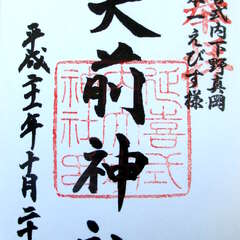 式内下野真岡
本一えびす様
大前神社
延喜式
神社印
平成二十一年十月二十